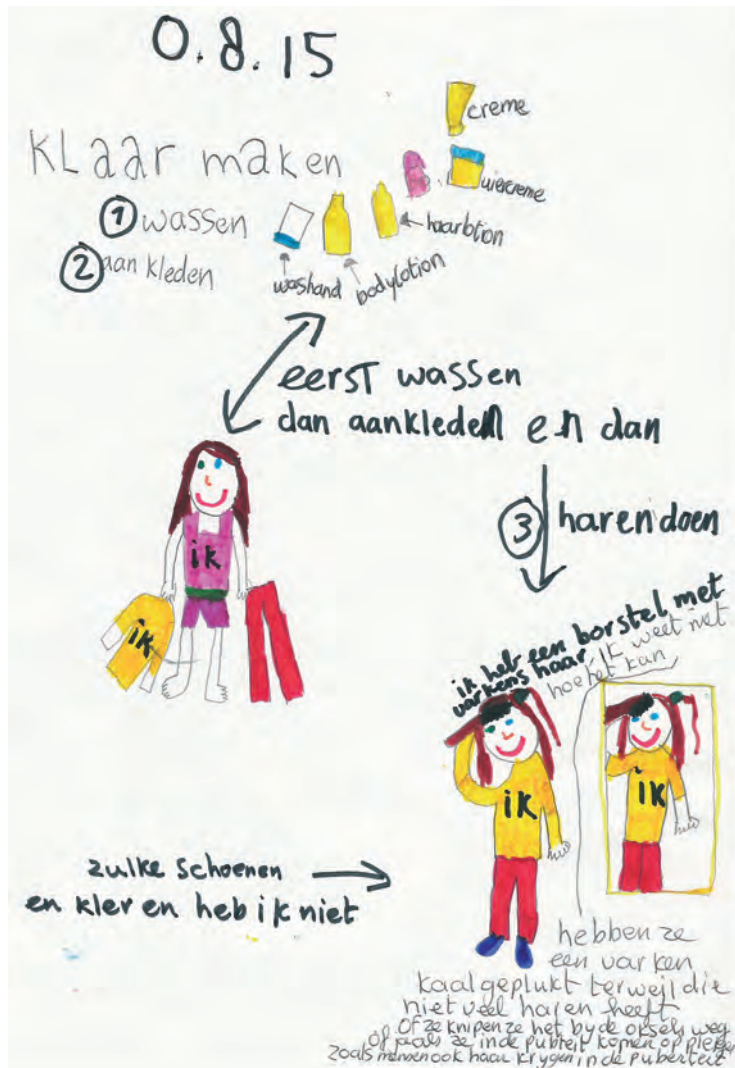 0.8.15
creme
KLaar maken
wiercreme
① wassen
haarlotion
② aan kleden
washand
bodylotion
eerst wassen
dan aankleden en dan
③ haren doen
ik
ik
ik heb een borstel met
varkens haar, ik weet niet
hoe het kan
ik
ik
zulke schoenen
en kleren heb ik niet
hebben ze
een varken
kaal geplukt terweijl die
niet veel haren heeft
Of ze knipen ze het by de oksels weg
of jaals ze in de pubteit komen op plekken
zoals mannen ook haar krygen in de puberteit